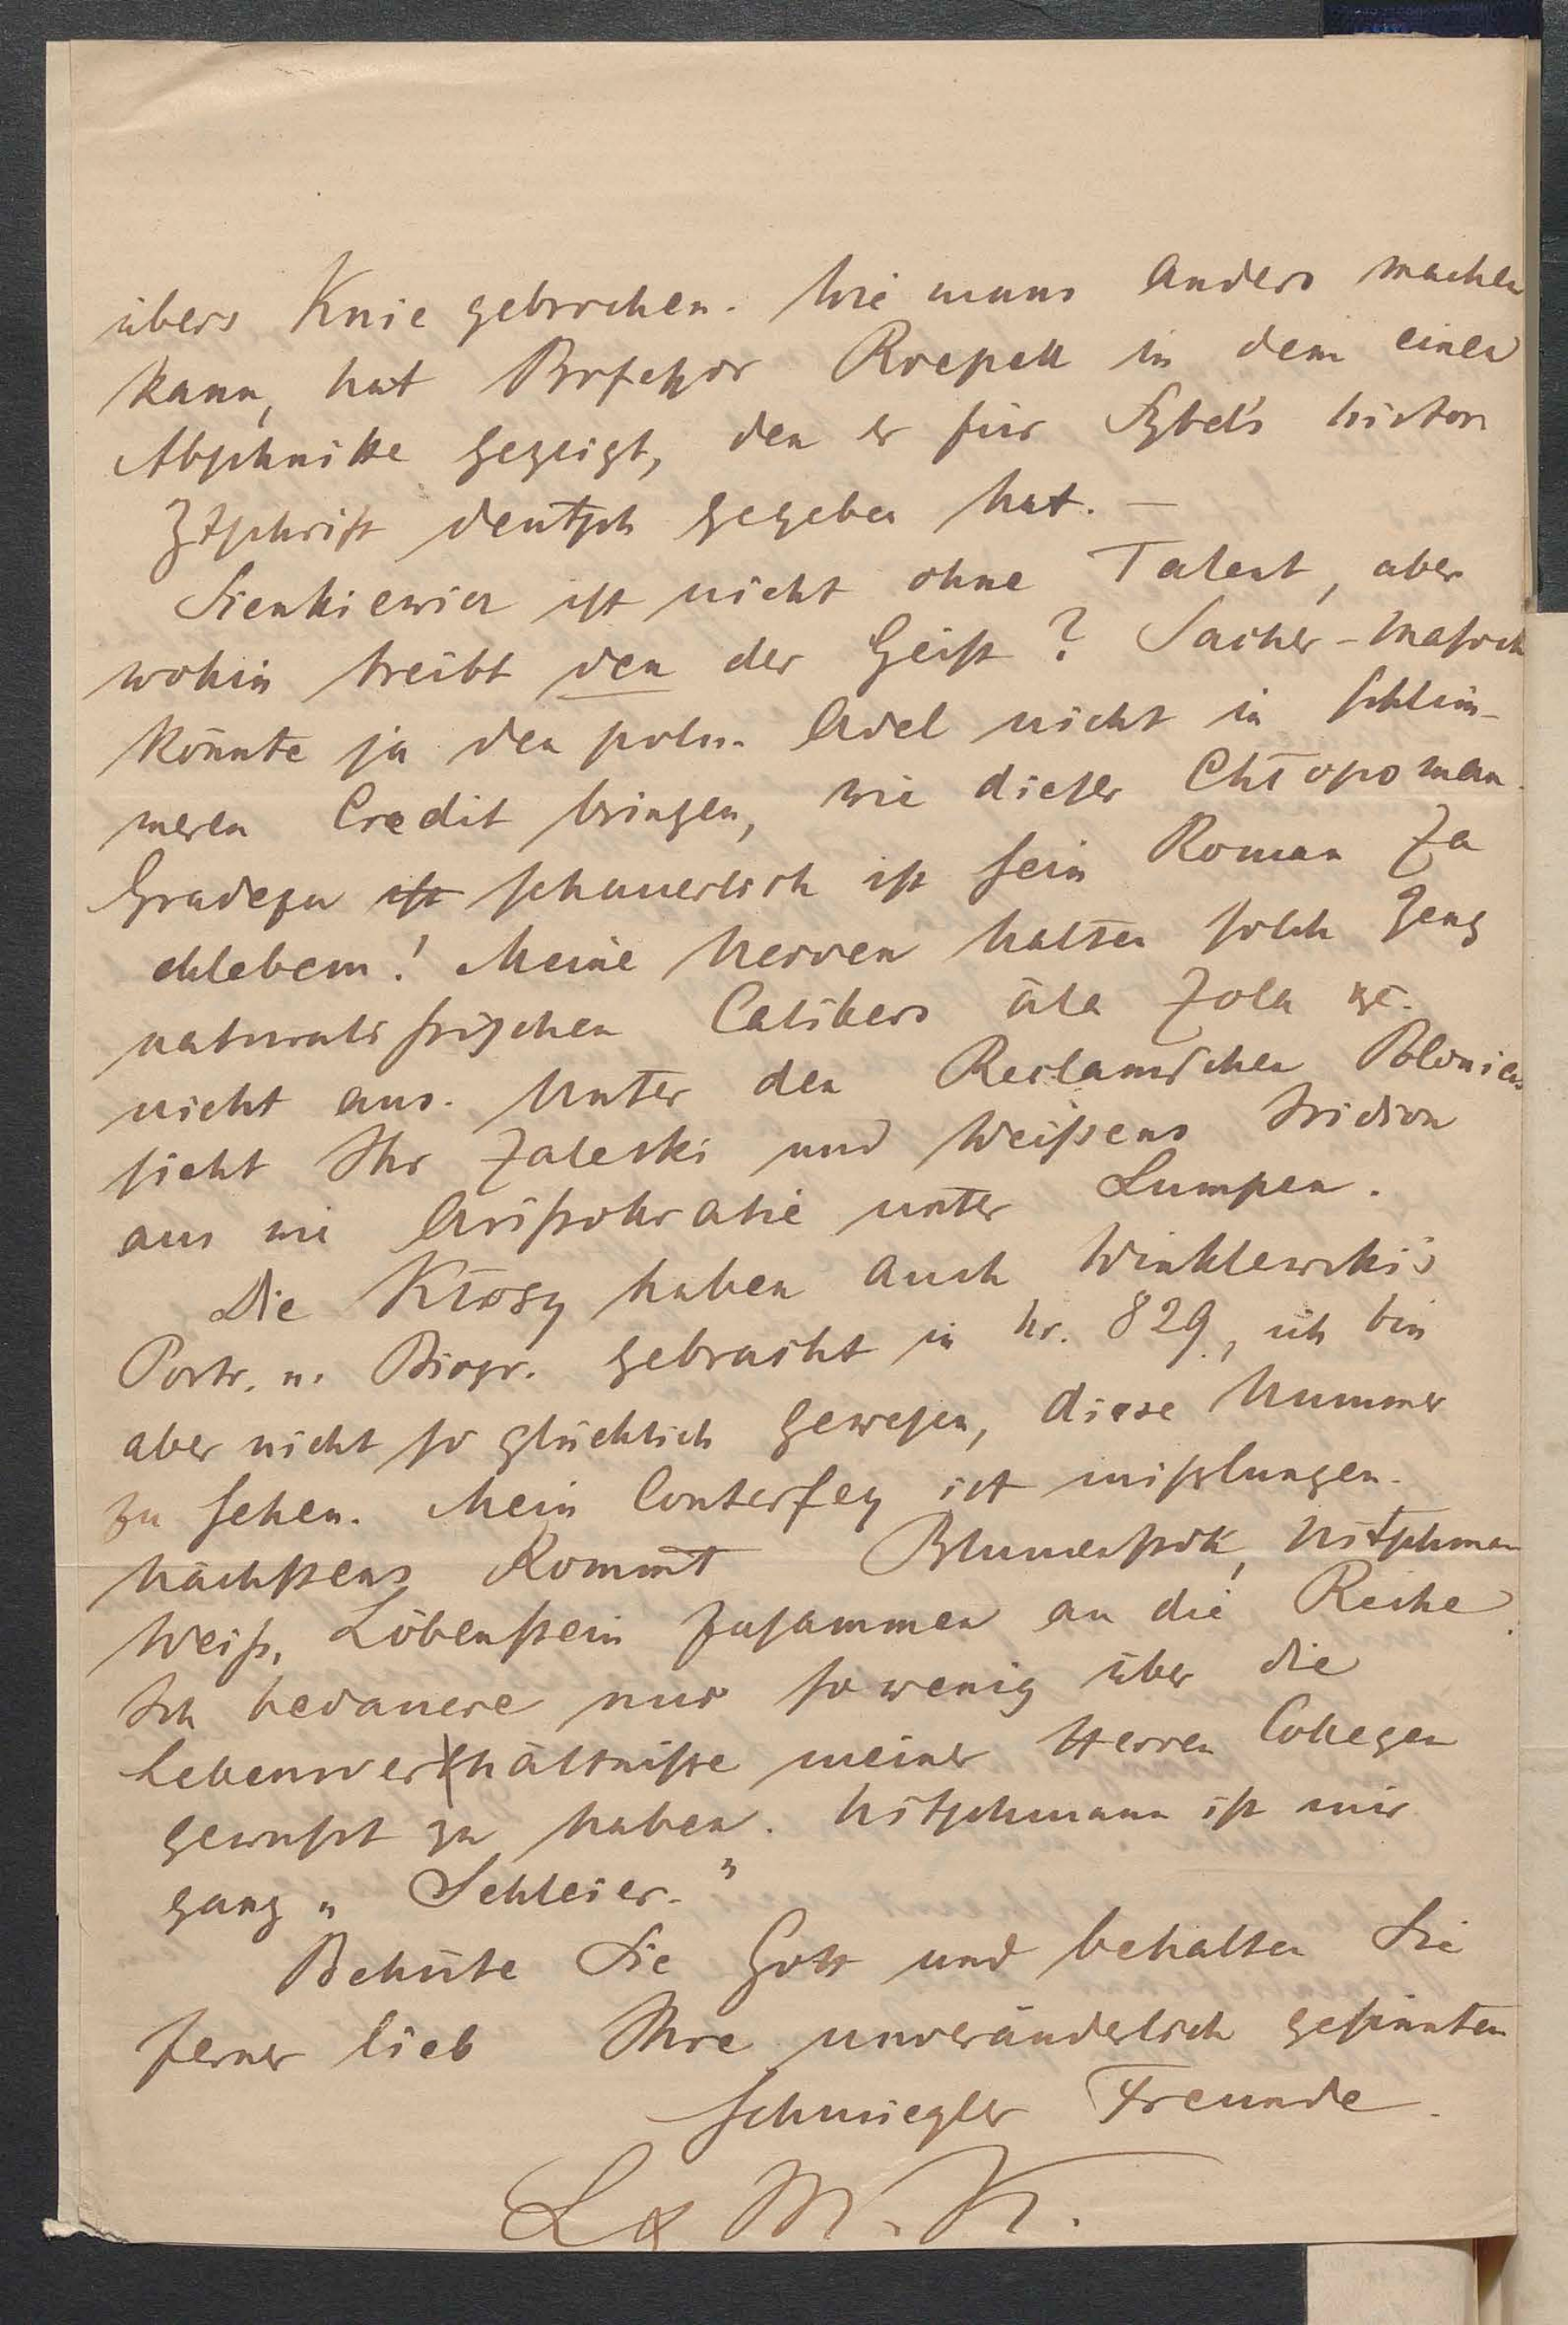 übers Knie gebrochen. Wie mans anders machen
kann, hat Professor Roepell in dem einen
Abschnitte gezeigt, den er für Sybel's histor
Ztschrift deutsch gegeben hat. —
Sienkiewicz ist nicht ohne Talent, aber
wohin treibt den der Geist? Sacher-Masoch
könnte ja den poln. Adel nicht in schlim-
meren Credit bringen, wie dieser Chłopoman.
Gradezu ist schauerlich ist sein Roman Za
chlebem! Meine Nerven halten solch Zeug
naturalistischen Calibers àla Zola etc.
nicht aus. Unter den Reclam'schen Polonicis
sieht Ihr Zaleski und Weissens Iridion
aus wie Aristokratie unter Lumpen.
Die Kłosy haben auch Winklewski's
Portr. u. Biogr. gebracht in Nr. 829, ich bin
aber nicht so glücklich gewesen, diese Nummer
zu sehen. Mein Conterfey ist misslungen.
Nächstens kommt Blumenstok, Nitschman
Weiss, Löbenstein zusammen an die Reihe.
Ich bedauere nur so wenig über die
Lebensverhältnisse meiner Herren Collegen
gewusst zu haben. Nitschmann ist mir
ganz „Schleier."
Behüte Sie Gott und behalten Sie
ferner lieb Ihre unveränderlich gesinnten
Schmiegler Freunde.
L & M. K.